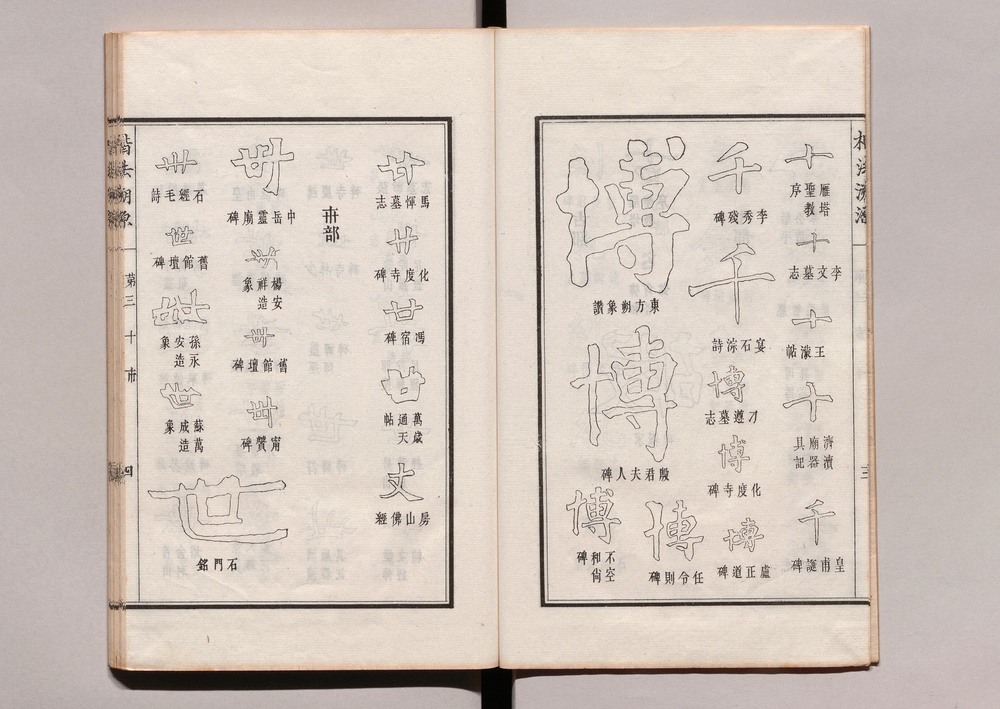 楷法溯源
三
十
雁塔聖教序
十
李文墓志
十
王濛帖
十
濟瀆廟器具記
千
皇甫誕碑
千
李秀殘碑
千
宴石淙詩
博
刁遵墓志
博
化度寺碑
博
盧正道碑
博
東方朔象讚
博
殷君夫人碑
博
任令則碑
博
不空和尚碑
廿
馬惲墓志
廿
化度寺碑
廿
馮宿碑
廿
萬歲通天帖
丈
房山佛經
卅部
世
中岳靈廟碑
世
楊安祥造象
世
舊館壇碑
世
甯贙碑
世
石經毛詩
世
舊館壇碑
世
孫永安造象
世
蘇萬成造象
世
石門銘
楷法溯源
第三
十
卅
四